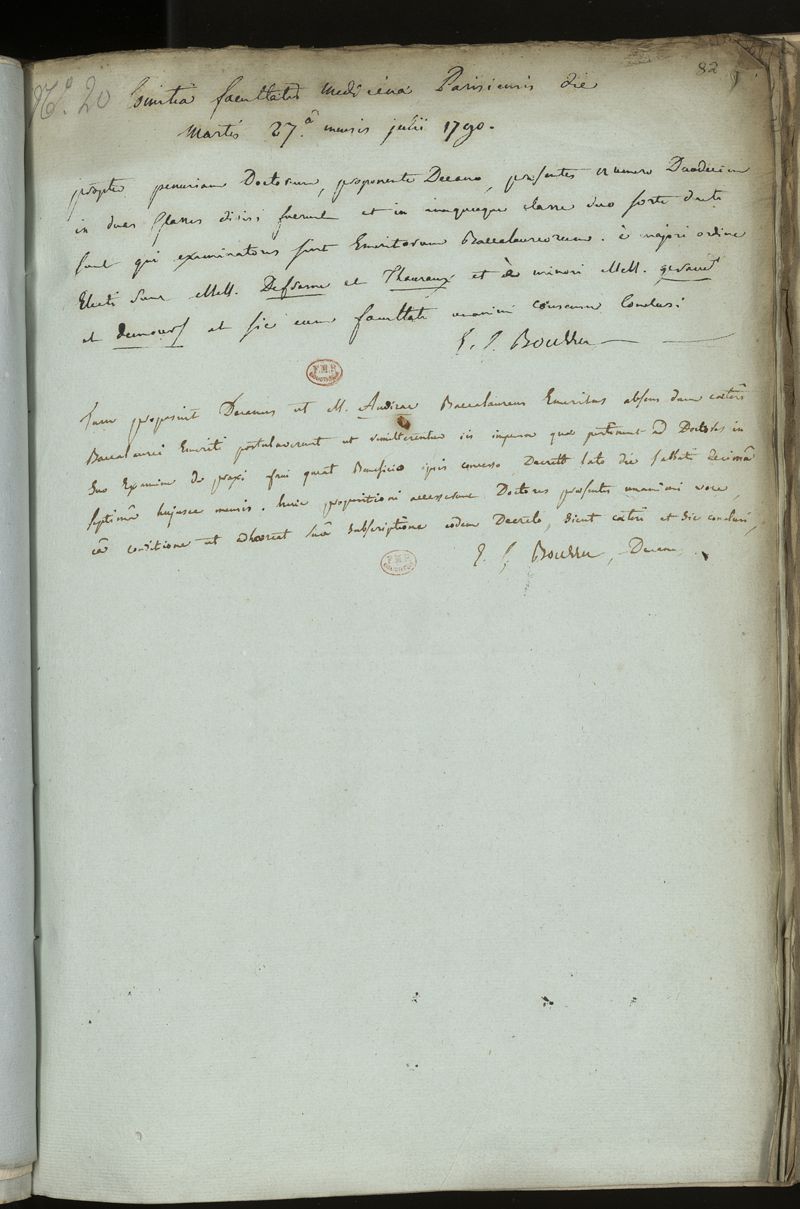 82
N.º 20 Comitia facultatis medicinæ Parisiensis die
Martis 27.â mensis julii 1790.
propter penuriam Doctorum, proponente Decano, præsentes numero Duodecim
in duas Classes divisi fuerunt et in unaquaque classe duo sorte ducti
sunt qui examinatores sint Emeritorum Baccalaureorum. è majori ordine
Electi sunt MM. et Thauraux et è minori MM.
et Demours et sic cum facultate unanimi consensu Conclusi
E. J. Bourru
F.M.P.
Tum proposuit Decanus ut M. Andirac Baccalaureus Emeritus absens dum cæteri
Baccalaurei Emeriti postulaverunt ut remitterentur iis impensæ quæ pertinent ad Doctores in
suo Examine de praxi frui queat Beneficio ipsis concesso Decreto lato die sabbati decimâ
septimâ hujusce mensis. huic propositioni accesserunt Doctores præsentes unanimi voce,
eâ conditione ut adhæreat suâ subscriptione eodem Decreto, sicut cæteri et sic conclusi,
E. J. Bourru, Decanus
F.M.P.